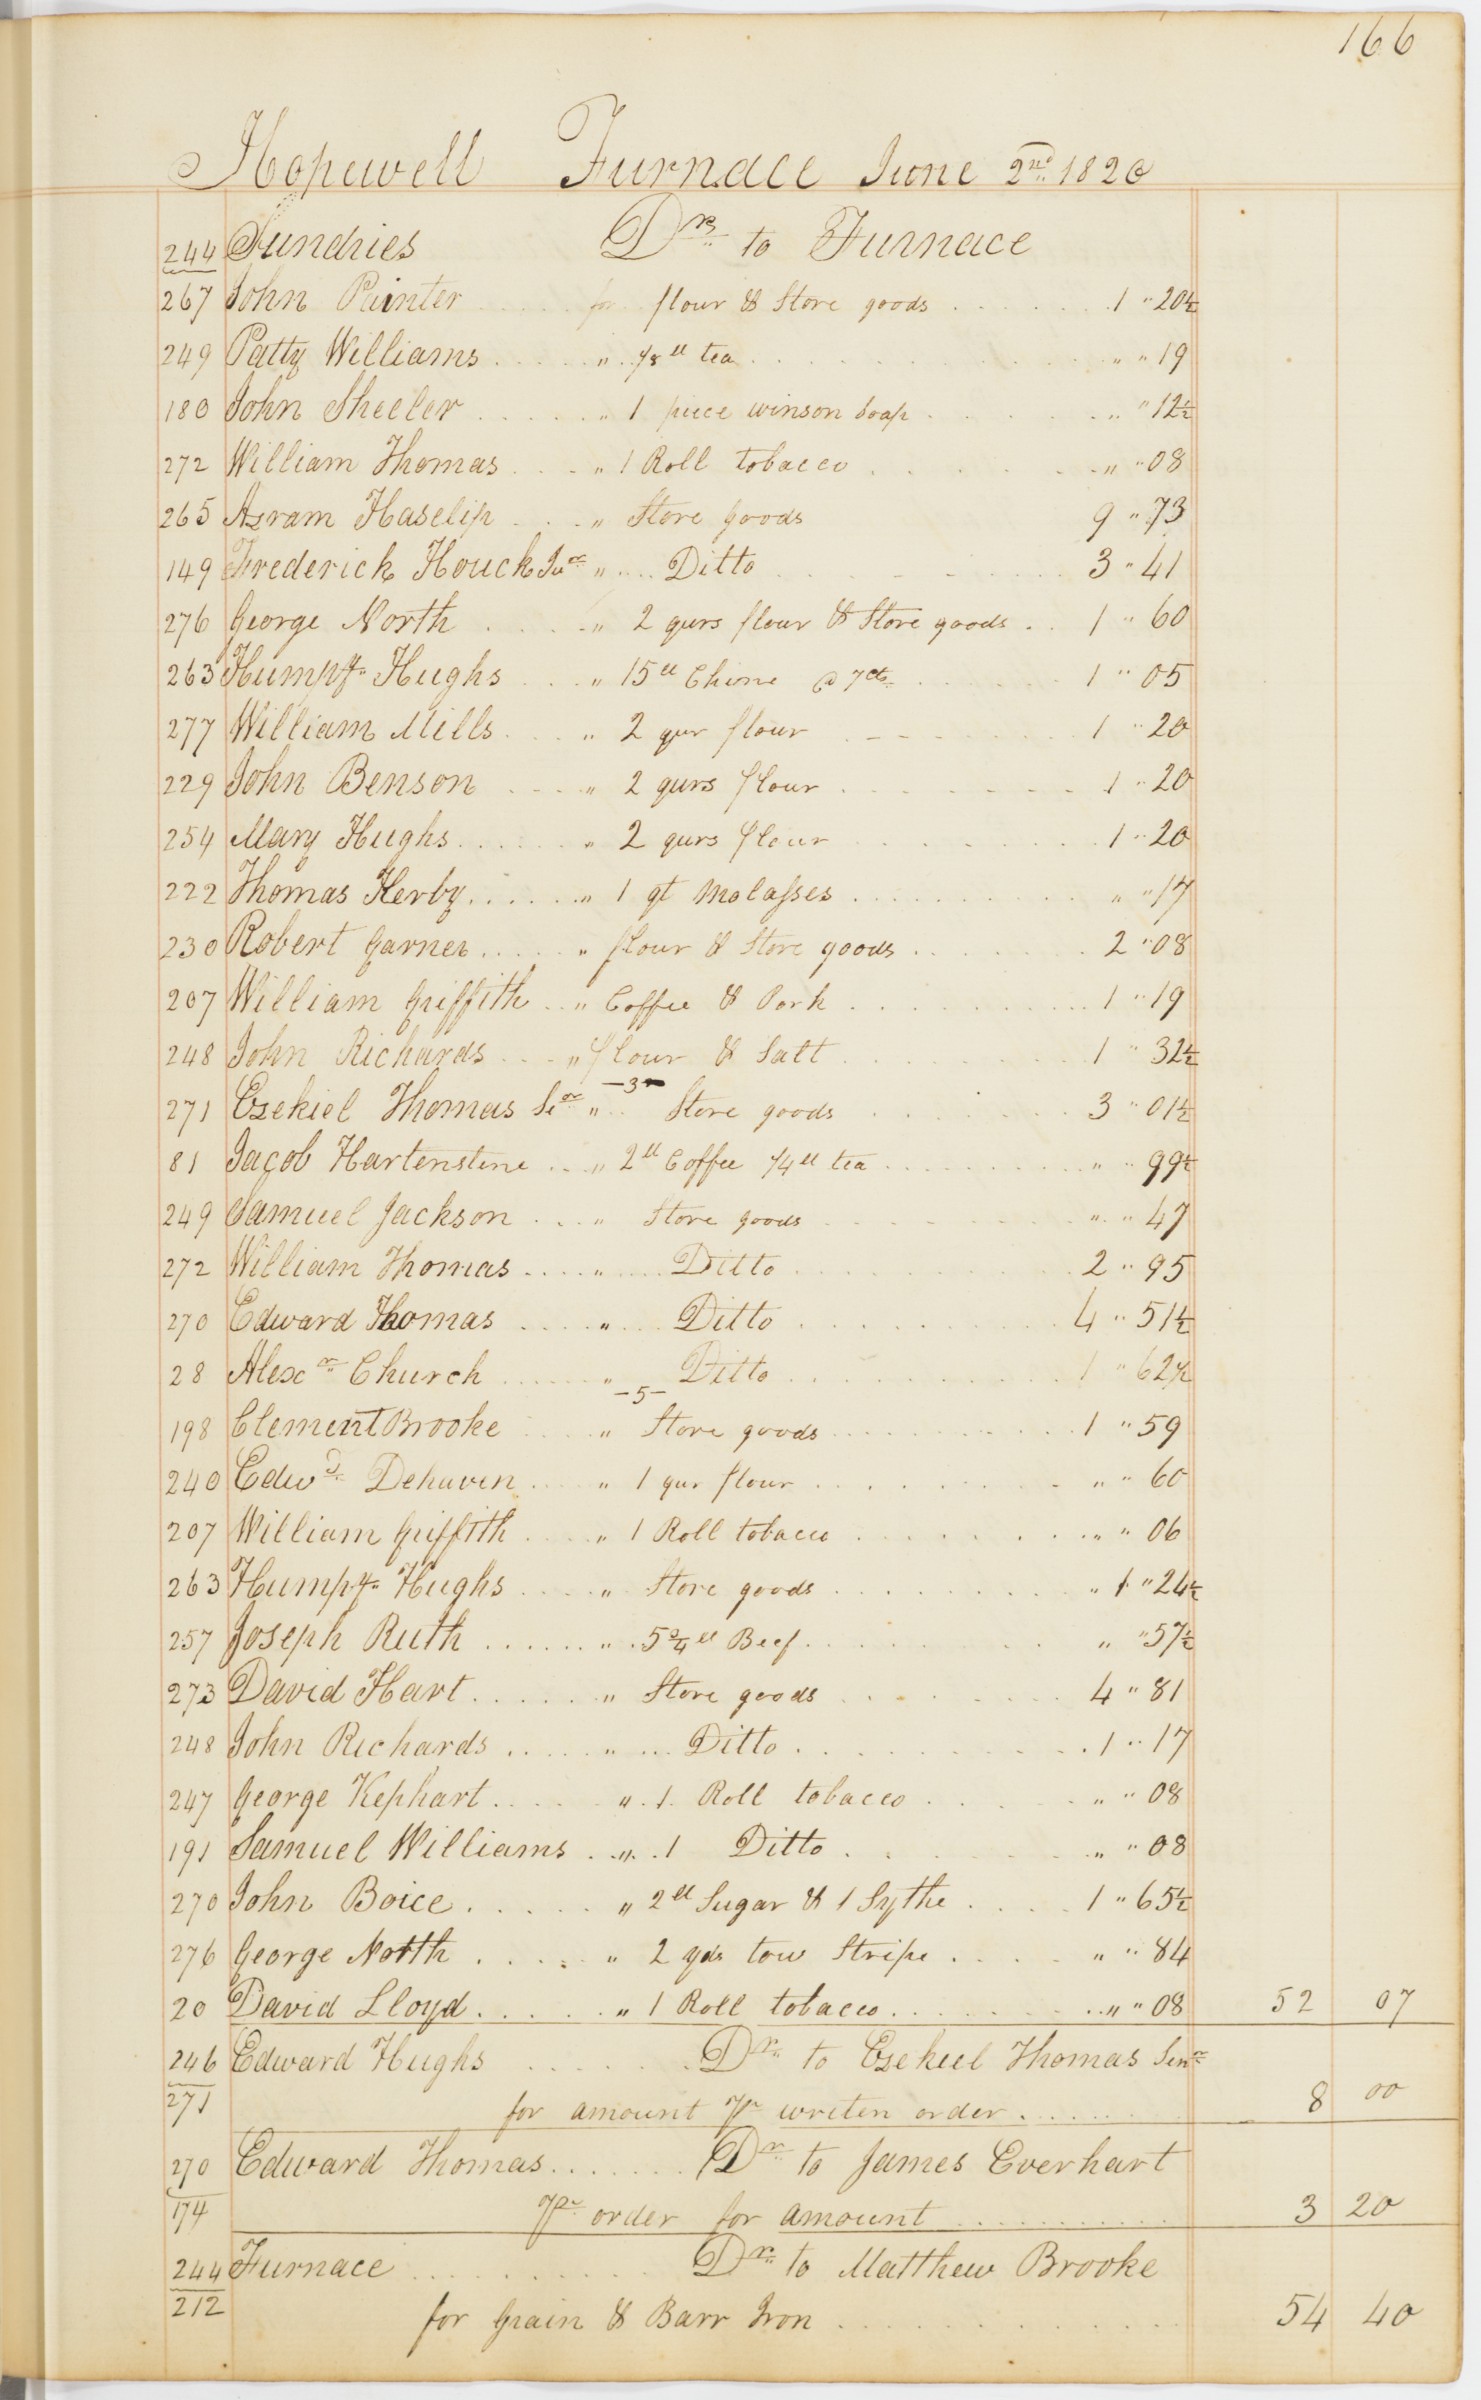 166
Hopewell Furnace June 2nd 1820
244 Sundries Drs to Furnace
267 John Painter for flour & Store goods 1 " 20½
249 Patty Williams " ⅛ ll tea " " 19
180 John Sheeler " 1 piece winson Soap " " 12½
272 William Thomas " 1 Roll tobacco " " 08
265 Azram Haselip " Store Goods 9 " 73
149 Frederick Houck Jur " Ditto 3 " 41
276 George North " 2 qurs flour & Store goods 1 " 60
263 Humpy Hughs " 15 ll Chine @ 7cts 1 " 05
277 William Mills " 2 qur flour 1 " 20
229 John Benson " 2 qurs flour 1 " 20
254 Mary Hughs " 2 qurs flour 1 " 20
222 Thomas Kerby " 1 qt Molasses " " 17
230 Robert Garner " flour & Store goods 2 " 08
207 William Griffith " Coffee & Pork 1 " 19
248 John Richards " flour & Salt 1 " 32½
—3—
271 Ezekiel Thomas Sior " Store goods 3 " 01½
81 Jacob Hartenstine " 2 ll Coffee ¼ ll tea " " 99½
249 Samuel Jackson " Store goods " " 47
272 William Thomas " Ditto 2 " 95
270 Edward Thomas " Ditto 4 " 51½
28 Alexr Church " Ditto 1 " 62½
—5—
198 Clement Brooke " Store goods 1 " 59
240 Edwd Dehaven " 1 qur flour " " 60
207 William Griffith " 1 Roll tobacco " " 06
263 Humpy Hughs " Store goods " 1 " 24½
257 Joseph Ruth " 5¾ ll Beef " " 57½
273 David Hart " Store goods 4 " 81
248 John Richards " Ditto 1 " 17
247 George Kephart " 1 Roll tobacco " " 08
191 Samuel Williams " 1 Ditto " " 08
270 John Boice " 2 ll Sugar & 1 Sythe 1 " 65½
276 George North " 2 yds tow Stripe " " 84
20 David Lloyd " 1 Roll tobacco " " 08 52 07
246 Edward Hughs Dr to Ezekiel Thomas Senr
271 for amount pr writen order 8 00
270 Edward Thomas Dr to James Everhart
174 pr order for amount 3 20
244 Furnace Dr to Matthew Brooke
212 for Grain & Barr Iron 54 40